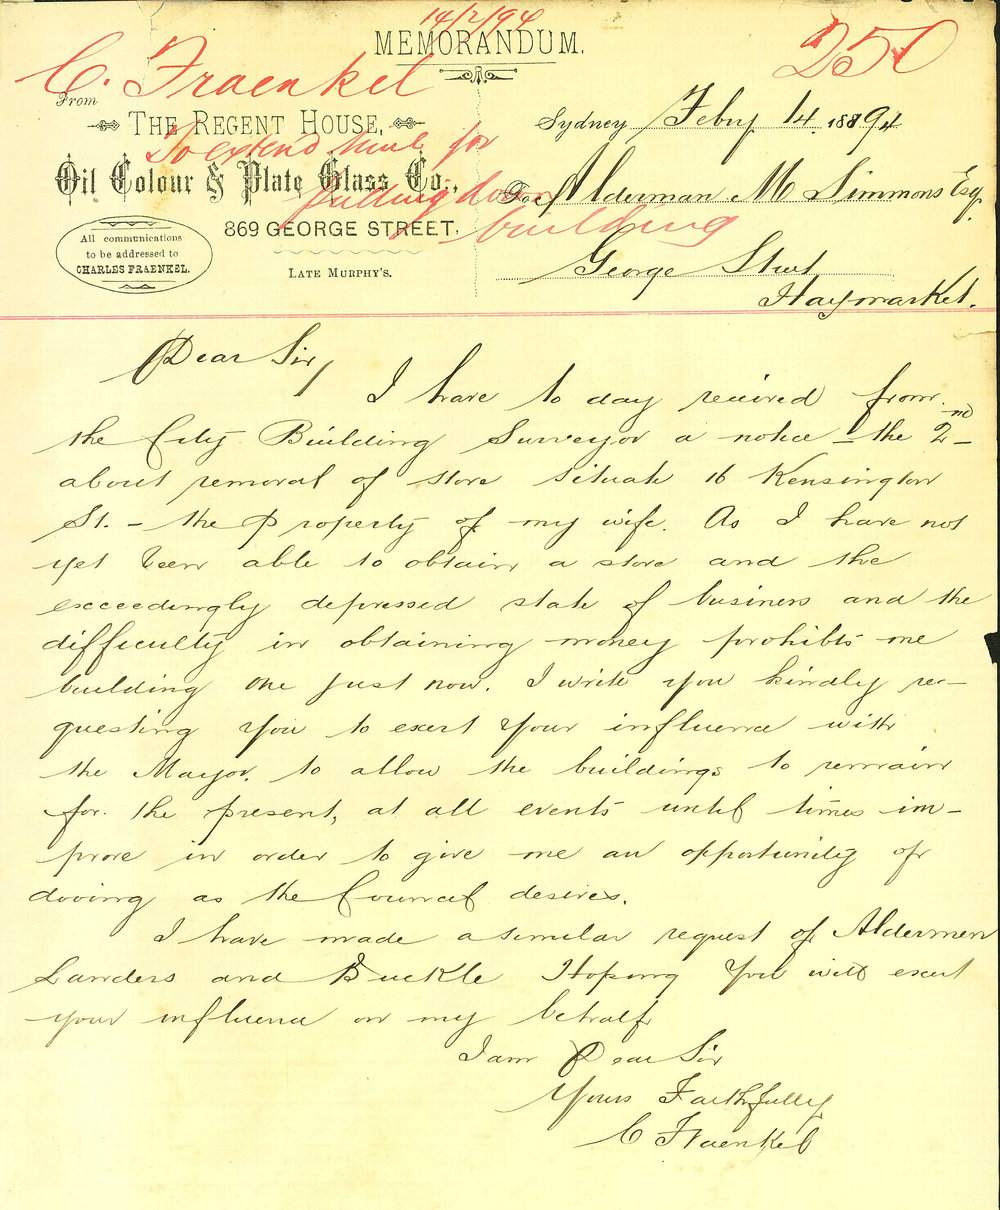 14/2/94
MEMORANDUM.
250
C. Fraenkel
From
THE REGENT HOUSE,
Oil Colour & Plate Glass Co.,
869 GEORGE STREET,
LATE MURPHY'S.
All communications
to be addressed to
CHARLES FRAENKEL.
To extend time for
pulling down
building
Sydney Feby 14 1894
To Alderman M Simmons Esq
George Street
Haymarket.
Dear Sir,
I have to day received from
the City Building Surveyor a notice – the 2nd –
about removal of store situate 16 Kensington
St. – the property of my wife. As I have not
yet been able to obtain a store and the
exceedingly depressed state of business and the
difficulty in obtaining money prohibits me
building one just now. I write you kindly re-
questing you to exert your influence with
the Mayor. to allow the buildings to remain
for the present, at all events until times im-
prove in order to give me an opportunity of
dooing as the Council desires.
I have made a similar request of Aldermen
Landers and Buckle Hoping you will exert
your influence on my behalf
I am Dear Sir
Yours Faithfully
C Fraenkel